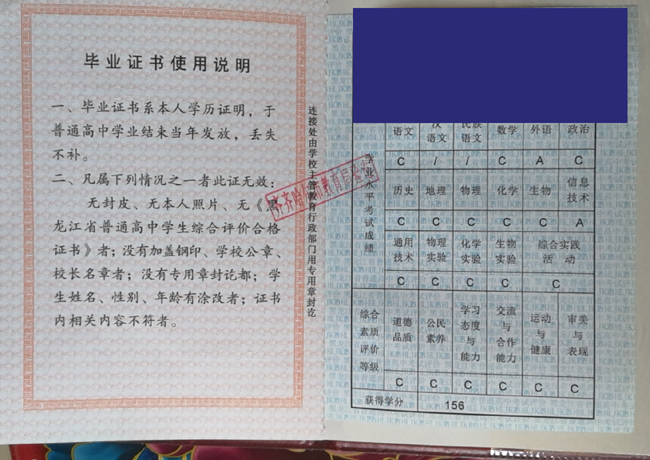 毕业证书使用说明
一、毕业证书系本人学历证明，于
普通高中学业结束当年发放，丢失
不补。
二、凡属下列情况之一者此证无效：
无封皮、无本人照片、无《黑
龙江省普通高中学生综合评价合格
证书》者；没有加盖钢印、学校公章、
校长名章者；没有专用章封讫都；学
生姓名、性别、年龄有涂改者；证书
内相关内容不符者。
连接处由学校主管教育行政部门用专用章封讫
学业水平考试成绩
语文 汉语文 民族语文 数学 外语 政治
C / / C A C
历史 地理 物理 化学 生物 信息技术
C C C C C A
通用技术 物理实验 化学实验 生物实验 综合实践活动
C C C C C
综合素质评价等级
道德品质 公民素养 学习态度与能力 交流与合作能力 运动与健康 审美与表现
C C C C C C
获得学分 156